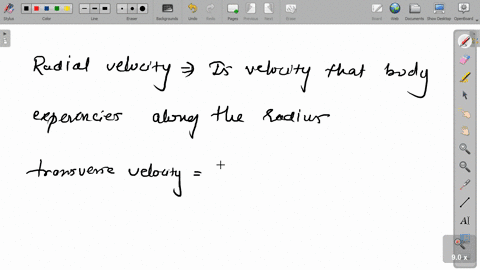 Board
Line
Eraser
Backgrounds
Undo
Redo
Pages
Previous
Next
Erase
Board
Web
Documents
Show Desktop
OpenBoard
Radial velocity ⇒ Is velocity that body
experencies along the radius
transverse velocity =
9.0 x